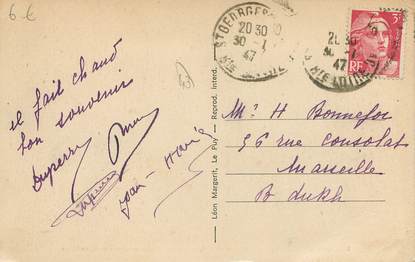 6 €
il fait chaud
bon souvenir
Duperry
Jean-
Léon Margerit, Le Puy - Reprod. interd.
ST GEORGES
20 30
30 - 1
47
20 30
30 - 1
47
3F
RF
Mr H Bonnefoy
56 rue Consolat
Marseille
B du Rh